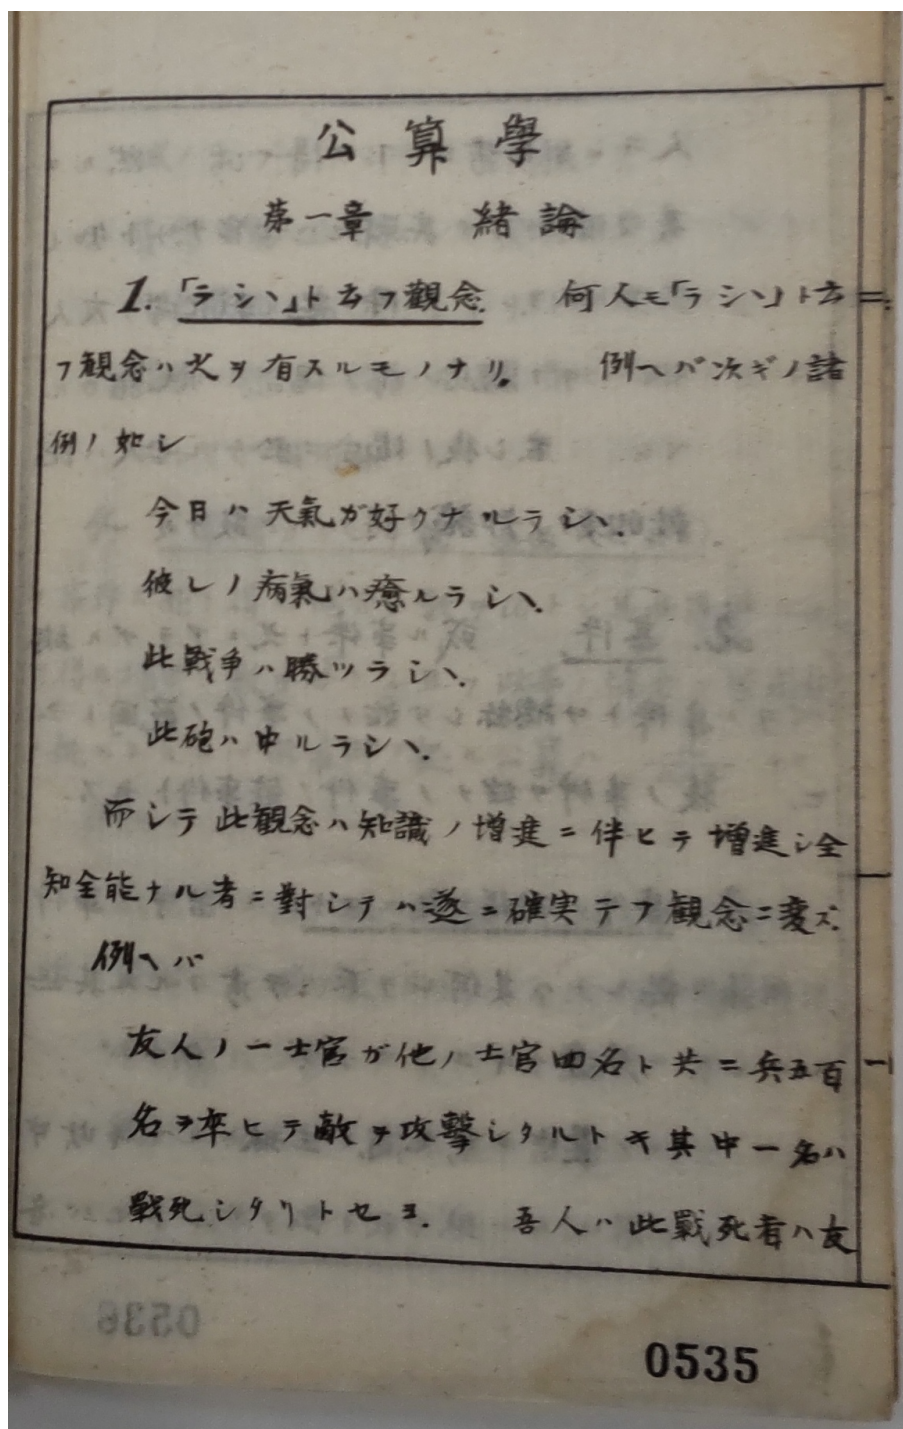 公算學
第一章　緒論
1.「ラシヽ」ト云フ觀念.　何人モ「ラシヽ」ト云
フ観念ハ之ヲ有スルモノナリ。　例ヘバ次ギノ諸
例ノ如シ
今日ハ天氣ガ好クナルラシヽ.
彼レノ病氣ハ癒ルラシヽ.
此戦争ハ勝ツラシヽ.
此砲ハ中ルラシヽ.
而シテ此観念ハ知識ノ増進ニ伴ヒテ増進シ全
知全能ナル者ニ對シテハ遂ニ確実テフ観念ニ変ズ.
例ヘバ
友人ノ一士官ガ他ノ士官四名ト共ニ兵五百
名ヲ率ヒテ敵ヲ攻撃シタルトキ其中一名ハ
戰死シタリトセヨ.　吾人ハ此戰死者ハ友
0535